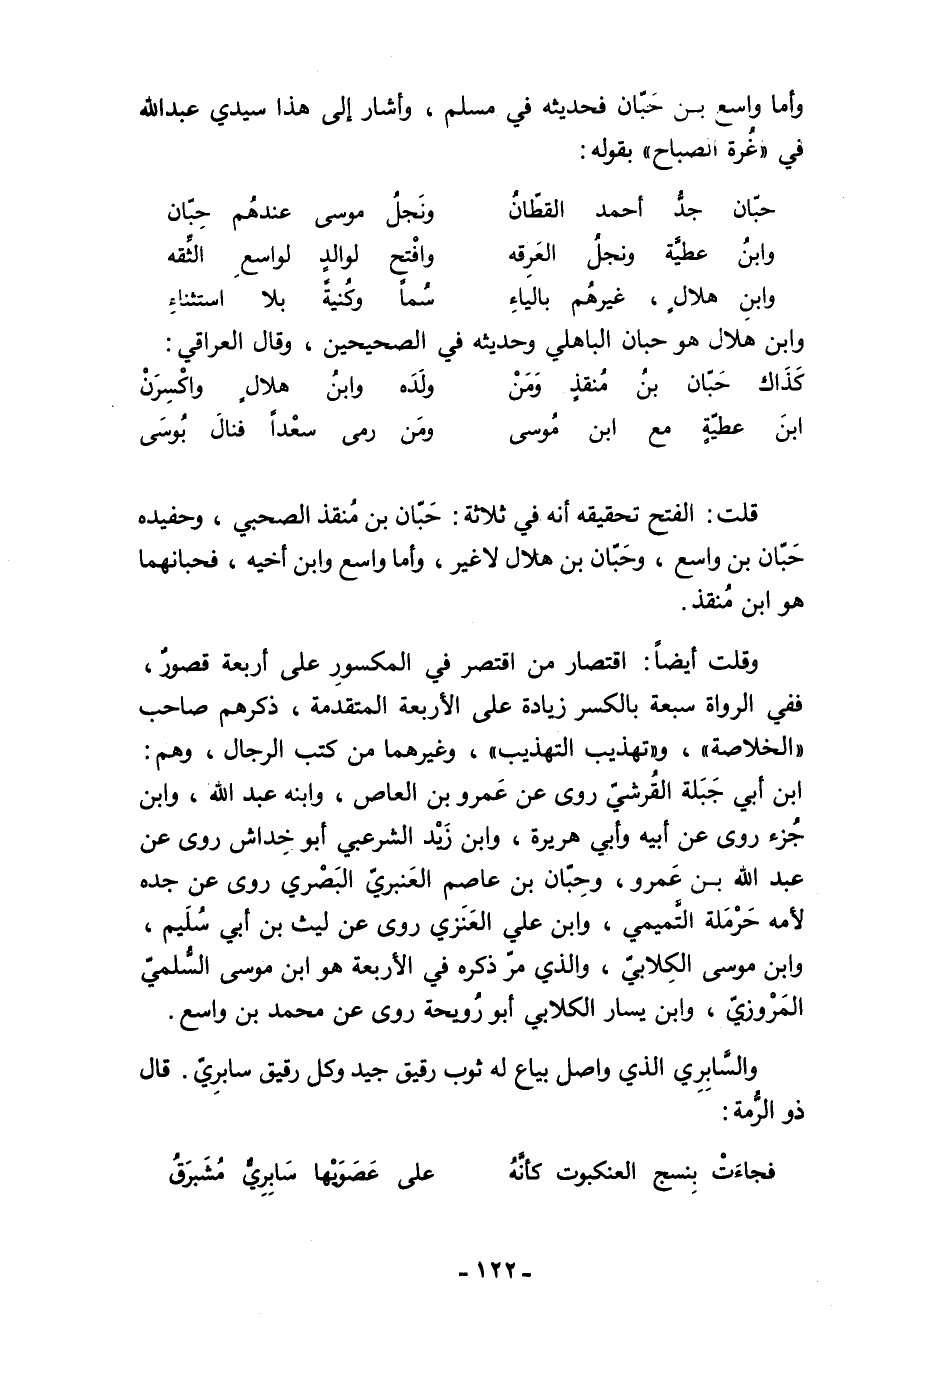 وأما واسع بن حَبّان فحديثه في مسلم ، وأشار إلى هذا سيدي عبدالله
في «غُرة الصباح» بقوله:
حبّان جدُّ أحمد القطّانُ ونَجلُ موسى عندهُم حِبّان
وابنُ عطيَّة ونجلُ العَرِقه وافْتح لوالدٍ لواسعِ الثِّقه
وابنِ هلالٍ ، غيرهُم بالياءِ سُماً وكُنيةً بلا استثناءِ
وابن هلال هو حبان الباهلي وحديثه في الصحيحين ، وقال العراقي:
كَذَاك حَبّان بنُ مُنقذٍ وَمَنْ ولَدَه وابنُ هلالٍ واكْسِرَنْ
ابنَ عطيّةٍ مع ابن مُوسى ومَن رمى سعْداً فنالَ بُوسَى
قلت: الفتح تحقيقه أنه في ثلاثة: حَبّان بن مُنقذ الصحبي ، وحفيده
حَبّان بن واسع ، وحَبّان بن هلال لاغير ، وأما واسع وابن أخيه ، فحبانهما
هو ابن مُنقذ.
وقلت أيضاً: اقتصار من اقتصر في المكسورِ على أربعة قصورٌ ،
ففي الرواة سبعة بالكسر زيادة على الأربعة المتقدمة ، ذكرهم صاحب
«الخلاصة» ، و«تهذيب التهذيب» ، وغيرهما من كتب الرجال ، وهم:
ابن أبي جَبَلة القُرشيّ روى عن عَمرو بن العاص ، وابنه عبد الله ، وابن
جُزء روى عن أبيه وأبي هريرة ، وابن زَيْد الشرعبي أبو خِداش روى عن
عبد الله بن عَمرو ، وحِبّان بن عاصم العَنبريّ البَصْري روى عن جده
لأمه حَرْمَلة التَّميمي ، وابن علي العَنَزي روى عن ليث بن أبي سُلَيم ،
وابن موسى الكِلابيّ ، والذي مرّ ذكره في الأربعة هو ابن موسى السُّلميّ
المَرْوزيّ ، وابن يسار الكلابي أبو رُويحة روى عن محمد بن واسع.
والسَّابِرِي الذي واصل بياع له ثوب رقيق جيد وكل رقيق سابرِيّ. قال
ذو الرُّمة:
فجاءَتْ بِنسج العنكبوت كأنَّهُ على عَصَوَيْها سَابِرِيٌّ مُشَبرَقُ
- ١٢٢ -